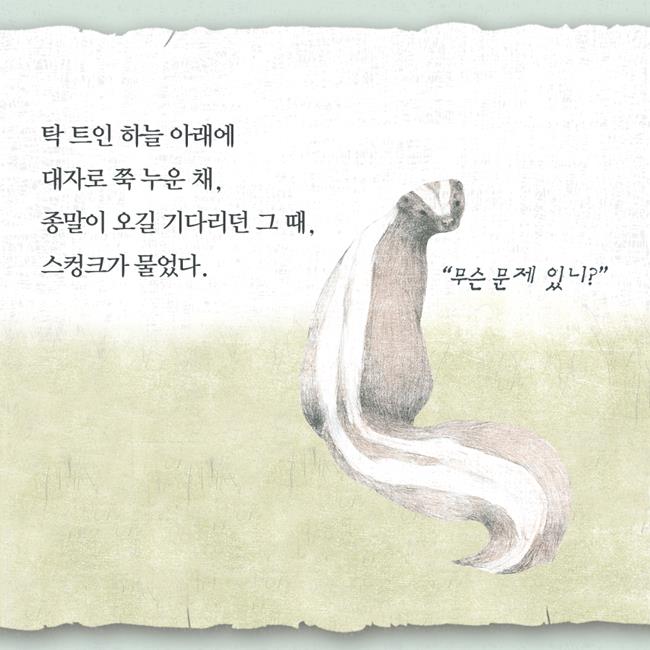 탁 트인 하늘 아래에
대자로 쭉 누운 채,
종말이 오길 기다리던 그 때,
스컹크가 물었다.
“무슨 문제 있니?”